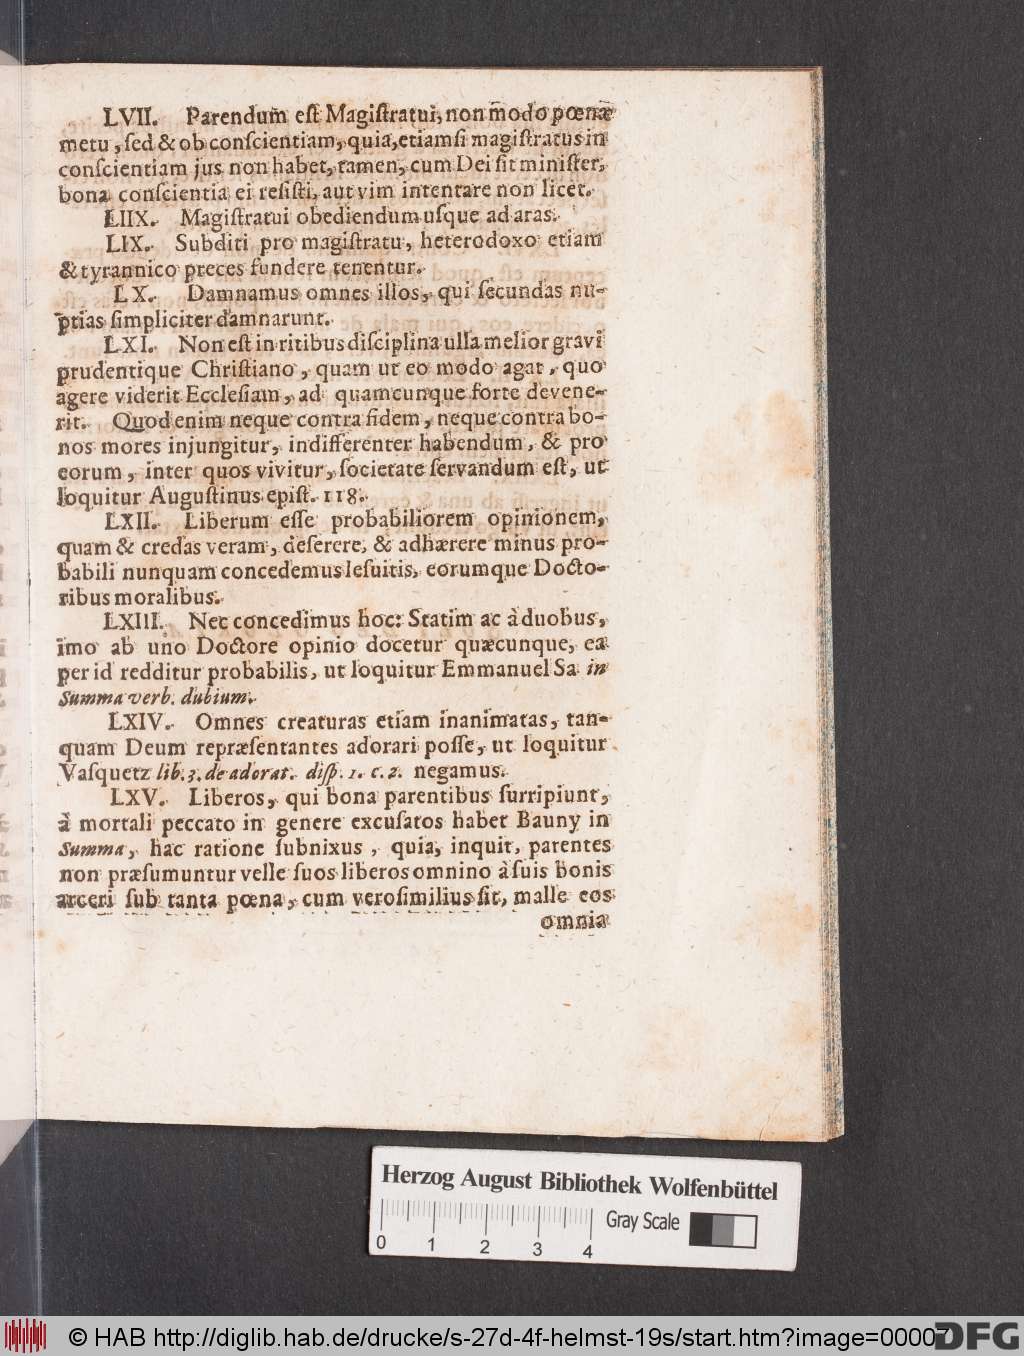 LVII. Parendum est Magiſtratui, non modo pœnæ
metu, ſed & ob conſcientiam, quia, etiamſi magiſtratus in
conſcientiam jus non habet, tamen, cum Dei ſit miniſter,
bona conſcientia ei reſiſti, aut vim intentare non licet.
LIIX. Magiſtratui obediendum uſque ad aras.
LIX. Subditi pro magiſtratu, heterodoxo etiam
& tyrannico preces fundere tenentur.
LX. Damnamus omnes illos, qui ſecundas nu-
ptias ſimpliciter damnarunt.
LXI. Non eſt in ritibus diſciplina ulla melior gravi
prudentique Chriſtiano, quam ut eo modo agat, quo
agere viderit Eccleſiam, ad quamcunque forte devene-
rit. Quod enim neque contra fidem, neque contra bo-
nos mores injungitur, indifferenter habendum, & pro
eorum, inter quos vivitur, ſocietate ſervandum eſt, ut
loquitur Auguſtinus epiſt. 118.
LXII. Liberum eſſe probabiliorem opinionem,
quam & credas veram, deſerere, & adhærere minus pro-
babili nunquam concedemus Ieſuitis, eorumque Docto-
ribus moralibus.
LXIII. Nec concedimus hoc: Statim ac à duobus,
imo ab uno Doctore opinio docetur quæcunque, ea
per id redditur probabilis, ut loquitur Emmanuel Sa in
Summa verb. dubium.
LXIV. Omnes creaturas etiam inanimatas, tan-
quam Deum repræſentantes adorari poſſe, ut loquitur
Vaſquetz lib. 3. de adorat. diſp. 1. c. 2. negamus.
LXV. Liberos, qui bona parentibus ſurripiunt,
à mortali peccato in genere excuſatos habet Bauny in
Summa, hac ratione ſubnixus, quia, inquit, parentes
non præſumuntur velle ſuos liberos omnino à ſuis bonis
arceri ſub tanta pœna, cum veroſimilius ſit, malle eos
omnia
Herzog August Bibliothek Wolfenbüttel
Gray Scale
0 1 2 3 4
© HAB http://diglib.hab.de/drucke/s-27d-4f-helmst-19s/start.htm?image=00007
DFG